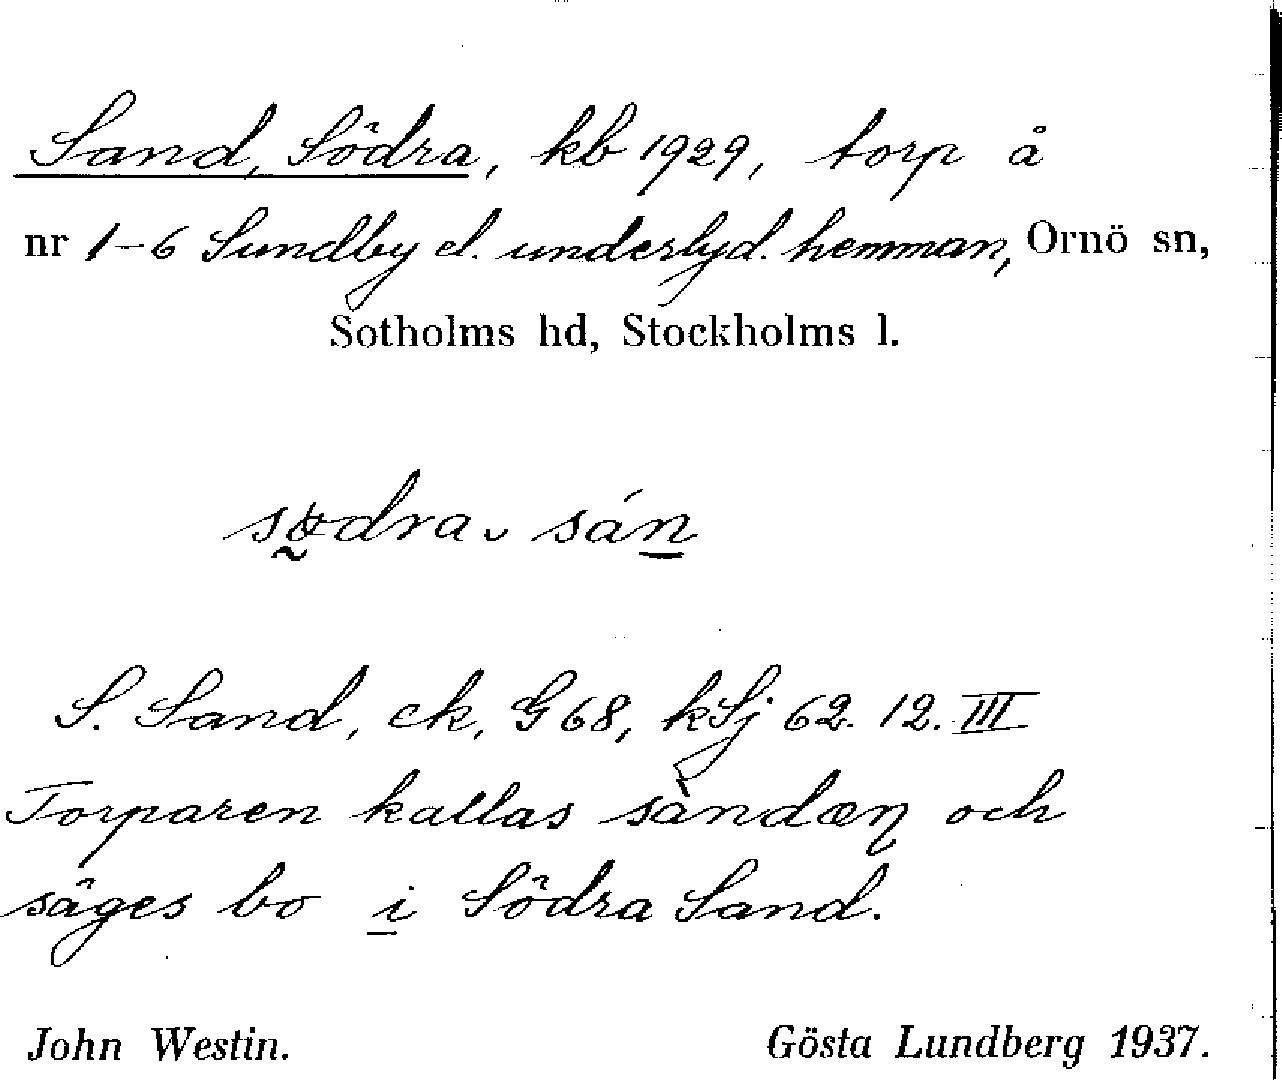 Sand, Södra, kb 1929, torp å
nr 1-6 Sundby el. underlyd. hemman, Ornö sn,
Sotholms hd, Stockholms l.
sødra sán
S. Sand, ek, G 68, kSj 62. 12. III
Torparen kallas sàndæɳ och
säges bo i Södra Sand.
John Westin. Gösta Lundberg 1937.